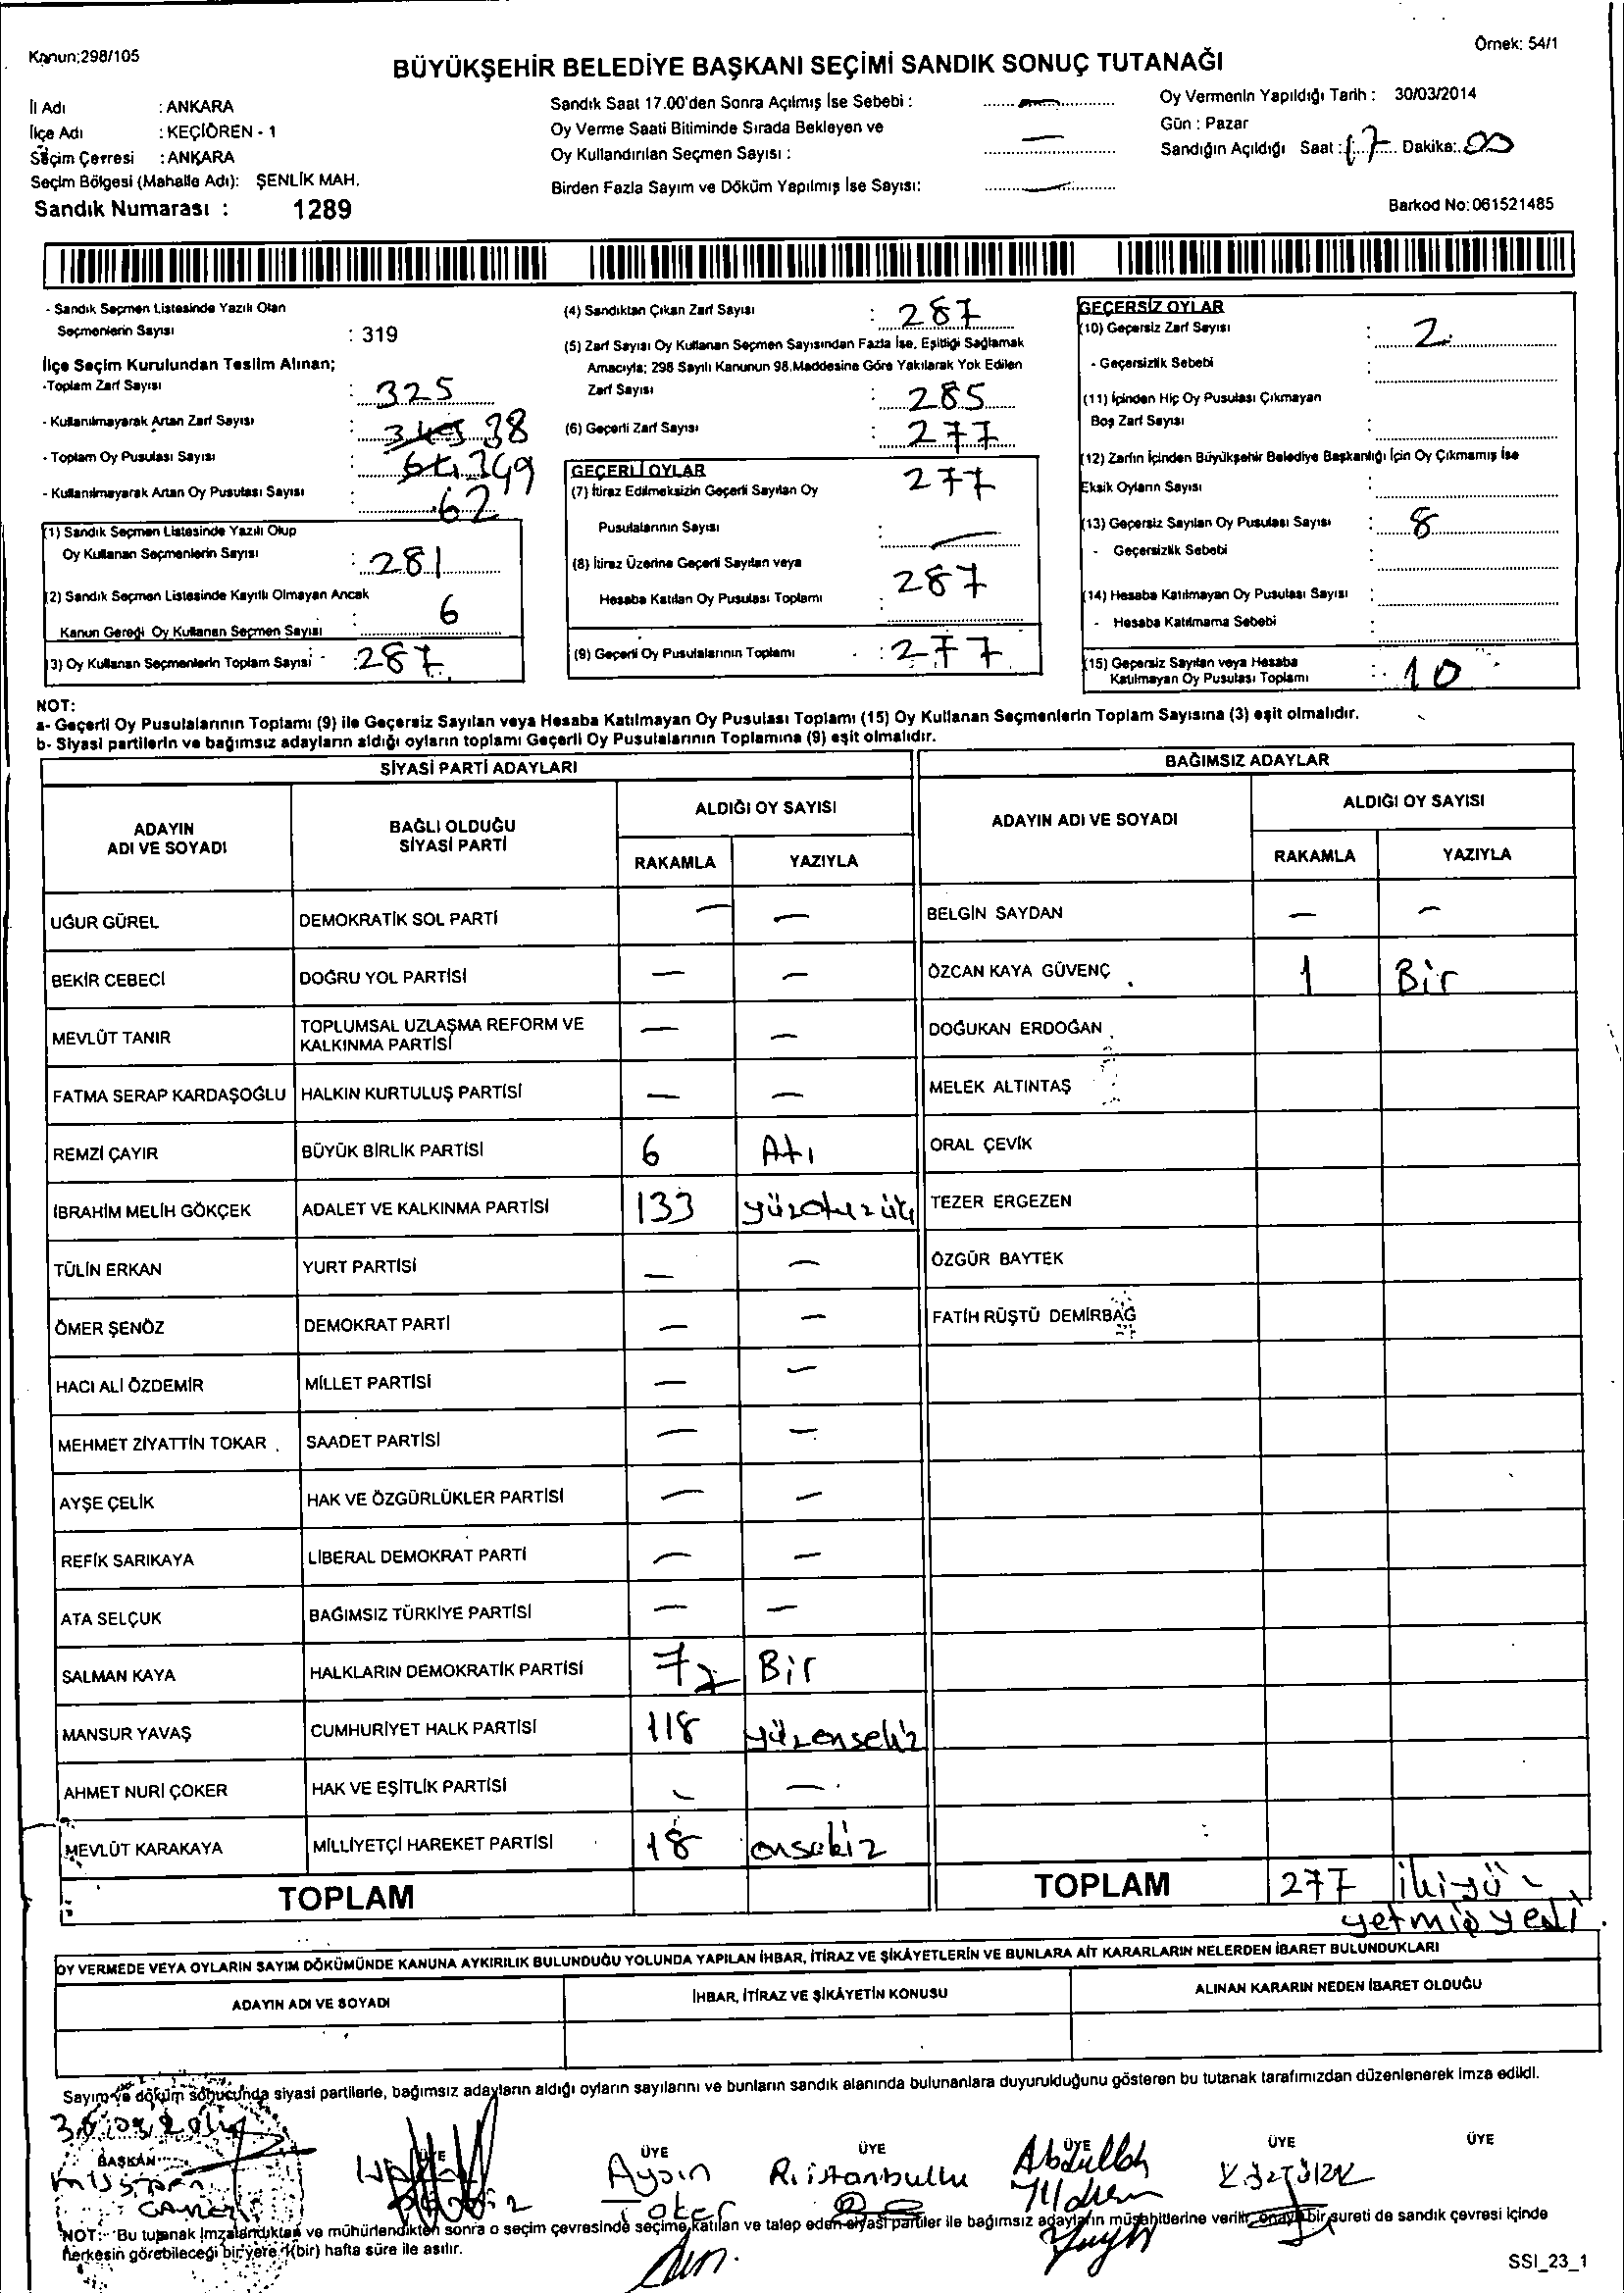 Kanun:298/105
Örnek: 54/1
BÜYÜKŞEHİR BELEDİYE BAŞKANI SEÇİMİ SANDIK SONUÇ TUTANAĞI
İl Adı : ANKARA
İlçe Adı : KEÇİÖREN - 1
Seçim Çevresi : ANKARA
Seçim Bölgesi (Mahalle Adı): ŞENLİK MAH.
Sandık Numarası : 1289
Sandık Saat 17.00'den Sonra Açılmış İse Sebebi :
Oy Verme Saati Bitiminde Sırada Bekleyen ve
Oy Kullandırılan Seçmen Sayısı :
Birden Fazla Sayım ve Döküm Yapılmış İse Sayısı:
Oy Vermenin Yapıldığı Tarih : 30/03/2014
Gün : Pazar
Sandığın Açıldığı Saat : 17 Dakika: 00
Barkod No: 061521485
- Sandık Seçmen Listesinde Yazılı Olan
Seçmenlerin Sayısı : 319
İlçe Seçim Kurulundan Teslim Alınan;
-Toplam Zarf Sayısı : 325
- Kullanılmayarak Artan Zarf Sayısı : 38
- Toplam Oy Pusulası Sayısı : 349
- Kullanılmayarak Artan Oy Pusulası Sayısı : 62
(1) Sandık Seçmen Listesinde Yazılı Olup
Oy Kullanan Seçmenlerin Sayısı : 281
(2) Sandık Seçmen Listesinde Kayıtlı Olmayan Ancak
Kanun Gereği Oy Kullanan Seçmen Sayısı : 6
(3) Oy Kullanan Seçmenlerin Toplam Sayısı : 287
(4) Sandıktan Çıkan Zarf Sayısı : 287
(5) Zarf Sayısı Oy Kullanan Seçmen Sayısından Fazla İse, Eşitliği Sağlamak
Amacıyla; 298 Sayılı Kanunun 98.Maddesine Göre Yakılarak Yok Edilen
Zarf Sayısı : 285
(6) Geçerli Zarf Sayısı : 277
GEÇERLİ OYLAR
(7) İtiraz Edilmeksizin Geçerli Sayılan Oy 277
Pusulalarının Sayısı :
(8) İtiraz Üzerine Geçerli Sayılan veya
Hesaba Katılan Oy Pusulası Toplamı : 287
(9) Geçerli Oy Pusulalarının Toplamı : 277
GEÇERSİZ OYLAR
(10) Geçersiz Zarf Sayısı : 2
- Geçersizlik Sebebi :
(11) İçinden Hiç Oy Pusulası Çıkmayan
Boş Zarf Sayısı :
(12) Zarfın İçinden Büyükşehir Belediye Başkanlığı İçin Oy Çıkmamış İse
Eksik Oyların Sayısı :
(13) Geçersiz Sayılan Oy Pusulası Sayısı : 8
- Geçersizlik Sebebi :
(14) Hesaba Katılmayan Oy Pusulası Sayısı :
- Hesaba Katılmama Sebebi :
(15) Geçersiz Sayılan veya Hesaba
Katılmayan Oy Pusulası Toplamı : 10
NOT:
a- Geçerli Oy Pusulalarının Toplamı (9) ile Geçersiz Sayılan veya Hesaba Katılmayan Oy Pusulası Toplamı (15) Oy Kullanan Seçmenlerin Toplam Sayısına (3) eşit olmalıdır.
b- Siyasi partilerin ve bağımsız adayların aldığı oyların toplamı Geçerli Oy Pusulalarının Toplamına (9) eşit olmalıdır.
SİYASİ PARTİ ADAYLARI
ADAYIN ADI VE SOYADI
BAĞLI OLDUĞU SİYASİ PARTİ
ALDIĞI OY SAYISI
RAKAMLA YAZIYLA
UĞUR GÜREL DEMOKRATİK SOL PARTİ — —
BEKİR CEBECİ DOĞRU YOL PARTİSİ — —
MEVLÜT TANIR TOPLUMSAL UZLAŞMA REFORM VE KALKINMA PARTİSİ — —
FATMA SERAP KARDAŞOĞLU HALKIN KURTULUŞ PARTİSİ — —
REMZİ ÇAYIR BÜYÜK BİRLİK PARTİSİ 6 Atı
İBRAHİM MELİH GÖKÇEK ADALET VE KALKINMA PARTİSİ 133
TÜLİN ERKAN YURT PARTİSİ — —
ÖMER ŞENÖZ DEMOKRAT PARTİ — —
HACI ALİ ÖZDEMİR MİLLET PARTİSİ — —
MEHMET ZİYATTİN TOKAR SAADET PARTİSİ — —
AYŞE ÇELİK HAK VE ÖZGÜRLÜKLER PARTİSİ — —
REFİK SARIKAYA LİBERAL DEMOKRAT PARTİ — —
ATA SELÇUK BAĞIMSIZ TÜRKİYE PARTİSİ — —
SALMAN KAYA HALKLARIN DEMOKRATİK PARTİSİ Bir
MANSUR YAVAŞ CUMHURİYET HALK PARTİSİ 118 yüzonsekiz
AHMET NURİ ÇOKER HAK VE EŞİTLİK PARTİSİ — —
MEVLÜT KARAKAYA MİLLİYETÇİ HAREKET PARTİSİ 18 onsekiz
TOPLAM
BAĞIMSIZ ADAYLAR
ADAYIN ADI VE SOYADI
ALDIĞI OY SAYISI
RAKAMLA YAZIYLA
BELGİN SAYDAN — —
ÖZCAN KAYA GÜVENÇ 1 Bir
DOĞUKAN ERDOĞAN
MELEK ALTINTAŞ
ORAL ÇEVİK
TEZER ERGEZEN
ÖZGÜR BAYTEK
FATİH RÜŞTÜ DEMİRBAĞ
TOPLAM 277 ikiyüz
yetmişyedi
OY VERMEDE VEYA OYLARIN SAYIM DÖKÜMÜNDE KANUNA AYKIRILIK BULUNDUĞU YOLUNDA YAPILAN İHBAR, İTİRAZ VE ŞİKÂYETLERİN VE BUNLARA AİT KARARLARIN NELERDEN İBARET BULUNDUKLARI
ADAYIN ADI VE SOYADI
İHBAR, İTİRAZ VE ŞİKÂYETİN KONUSU
ALINAN KARARIN NEDEN İBARET OLDUĞU
Sayım ve döküm sonucunda siyasi partilerle, bağımsız adayların aldığı oyların sayılarını ve bunların sandık alanında bulunanlara duyurulduğunu gösteren bu tutanak tarafımızdan düzenlenerek imza edildi.
30/03/2014
BAŞKAN ÜYE ÜYE ÜYE ÜYE ÜYE ÜYE
Aydın
Toker
R. istanbullu
Abdullah
Yıldırım
K. Öztürk
NOT: Bu tutanak imzalandıktan ve mühürlendikten sonra o seçim çevresinde seçime katılan ve talep eden siyasi partiler ile bağımsız adayların müşahitlerine verilir, onaylı bir sureti de sandık çevresi içinde
herkesin görebileceği bir yere 1(bir) hafta süre ile asılır.
SSI_23_1